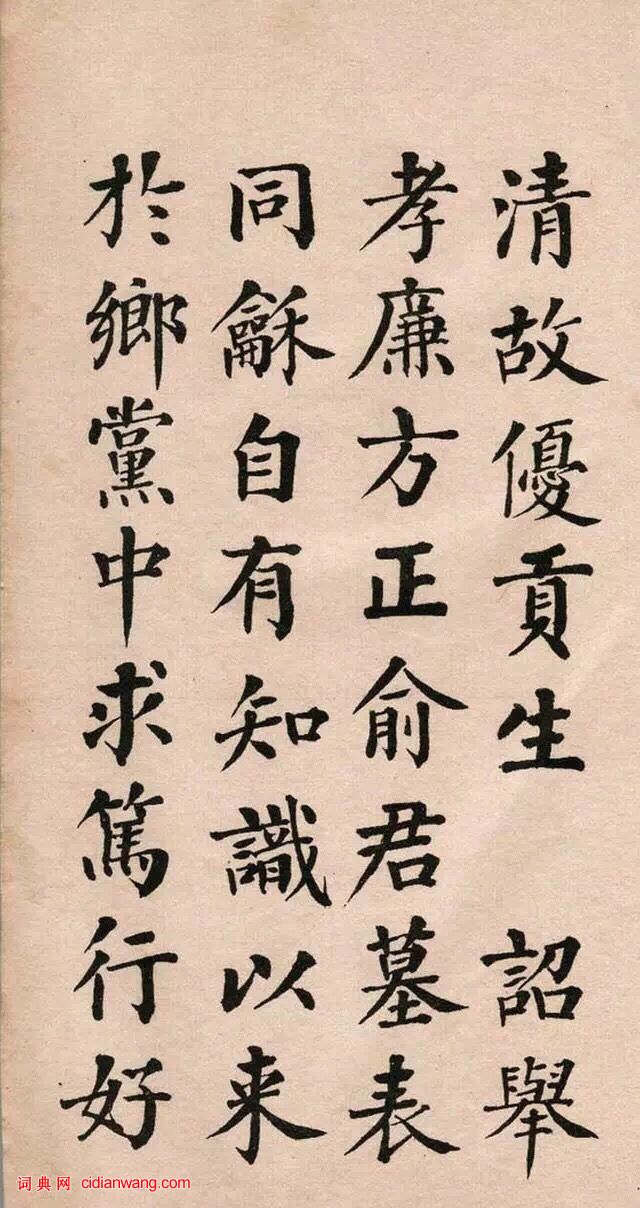 清故優貢生 詔舉
孝廉方正俞君墓表
同龢自有知識以来
於鄉黨中求篤行好
词典网 cidianwang.com